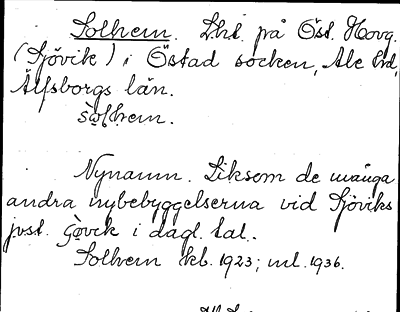 Solhem. Lht. på Öst. Hovg.
(Sjövik) i Östad socken, Ale hd,
Älfsborgs län.
sòlhem.
Nynamn. Liksom de många
andra nybebyggelserna vid Sjöviks
jvst. i dagl. tal.
Solhem kb. 1923; ml. 1936.